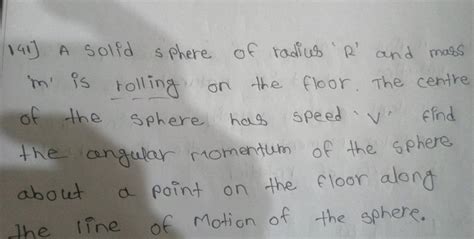 141] A solid sphere of radius 'R' and mass
'm' is rolling on the floor. The centre
of the sphere has speed 'V' find
the angular momentum of the sphere
about a point on the floor along
the line of motion of the sphere.